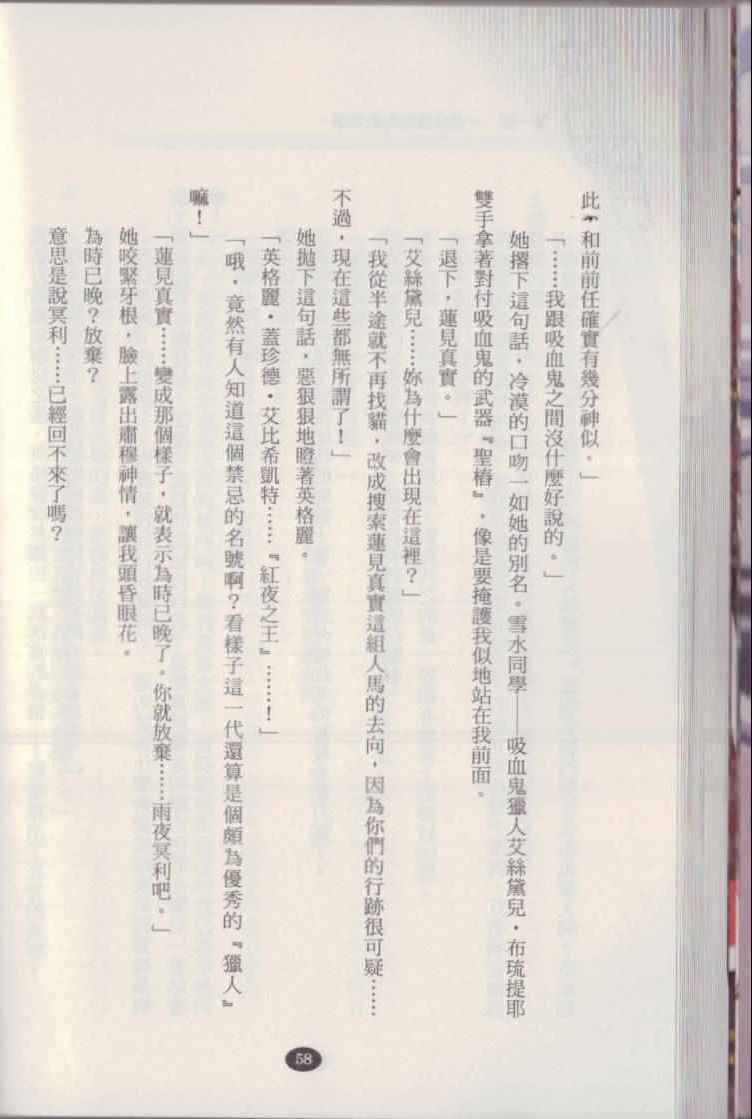 此，和前前任確實有幾分神似。」
「……我跟吸血鬼之間沒什麼好說的。」
她撂下這句話，冷漠的口吻一如她的別名。雪水同學──吸血鬼獵人艾絲黛兒・布琉提耶
雙手拿著對付吸血鬼的武器『聖樁』，像是要掩護我似地站在我前面。
「退下，蓮見真實。」
「艾絲黛兒……妳為什麼會出現在這裡？」
「我從半途就不再找貓，改成搜索蓮見真實這組人馬的去向，因為你們的行跡很可疑……
不過，現在這些都無所謂了！」
她拋下這句話，惡狠狠地瞪著英格麗。
「英格麗・蓋珍德・艾比希凱特……『紅夜之王』……！」
「哦，竟然有人知道這個禁忌的名號啊？看樣子這一代還算是個頗為優秀的『獵人』
嘛！」
「蓮見真實……變成那個樣子，就表示為時已晚了。你就放棄……雨夜冥利吧。」
她咬緊牙根，臉上露出肅穆神情，讓我頭昏眼花。
為時已晚？放棄？
意思是說冥利……已經回不來了嗎？
58